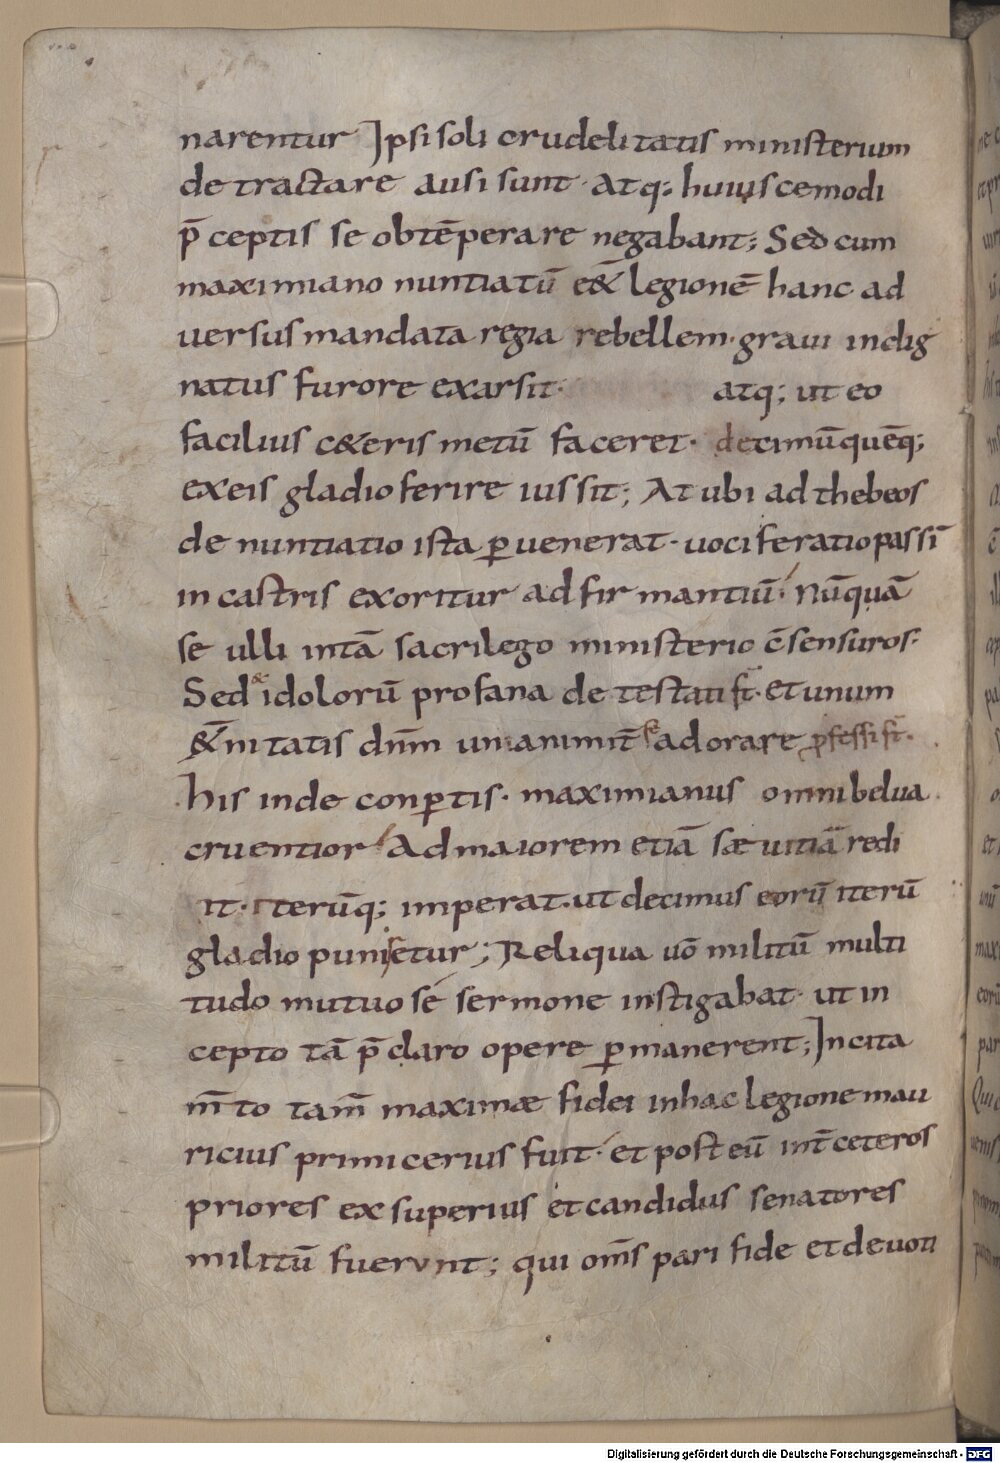 narentur Ipsi soli crudelitatis ministerium
detractare ausi sunt · Atq; huiuscemodi
p̄ceptis se obtēperare negabant; Sed cum
maximiano nuntiatū e&̄ legionē hanc ad
uersus mandata regia rebellem · graui indig
natus furore exarsit · atq; ut eo
facilius c&eris metū faceret · decimūquēq;
ex eis gladio ferire iussit; At ubi ad thebeos
denuntiatio ista ꝑuenerat · uociferatio passī
in castris exoritur adfirmantiū · Nūquā
se ulli in tā sacrilego ministerio c̄sensuros ·
Sed & idolorū profana detestati st̄ · et unum
&̄nitatis dn̄m unanimit̄ se adorare ꝓfessi st̄ ·
his inde conꝑtis · maximianus omni belua
cruentior Ad maiorem etiā sæuitiā redi
it · iterūq; imperat · ut decimus eorū iterū
gladio puniretur; Reliqua uō militū multi
tudo mutuo se sermone instigabat · ut in
cepto tā p̄claro opere ꝑmanerent; Incita
m̄to tam̄ maximæ fidei in hac legione mau
ricius primicerius fuit · et post eū int̄ ceteros
priores exsuperius et candidus senatores
militū fuerunt; qui om̄s pari fide et deuoti
Digitalisierung gefördert durch die Deutsche Forschungsgemeinschaft - DFG